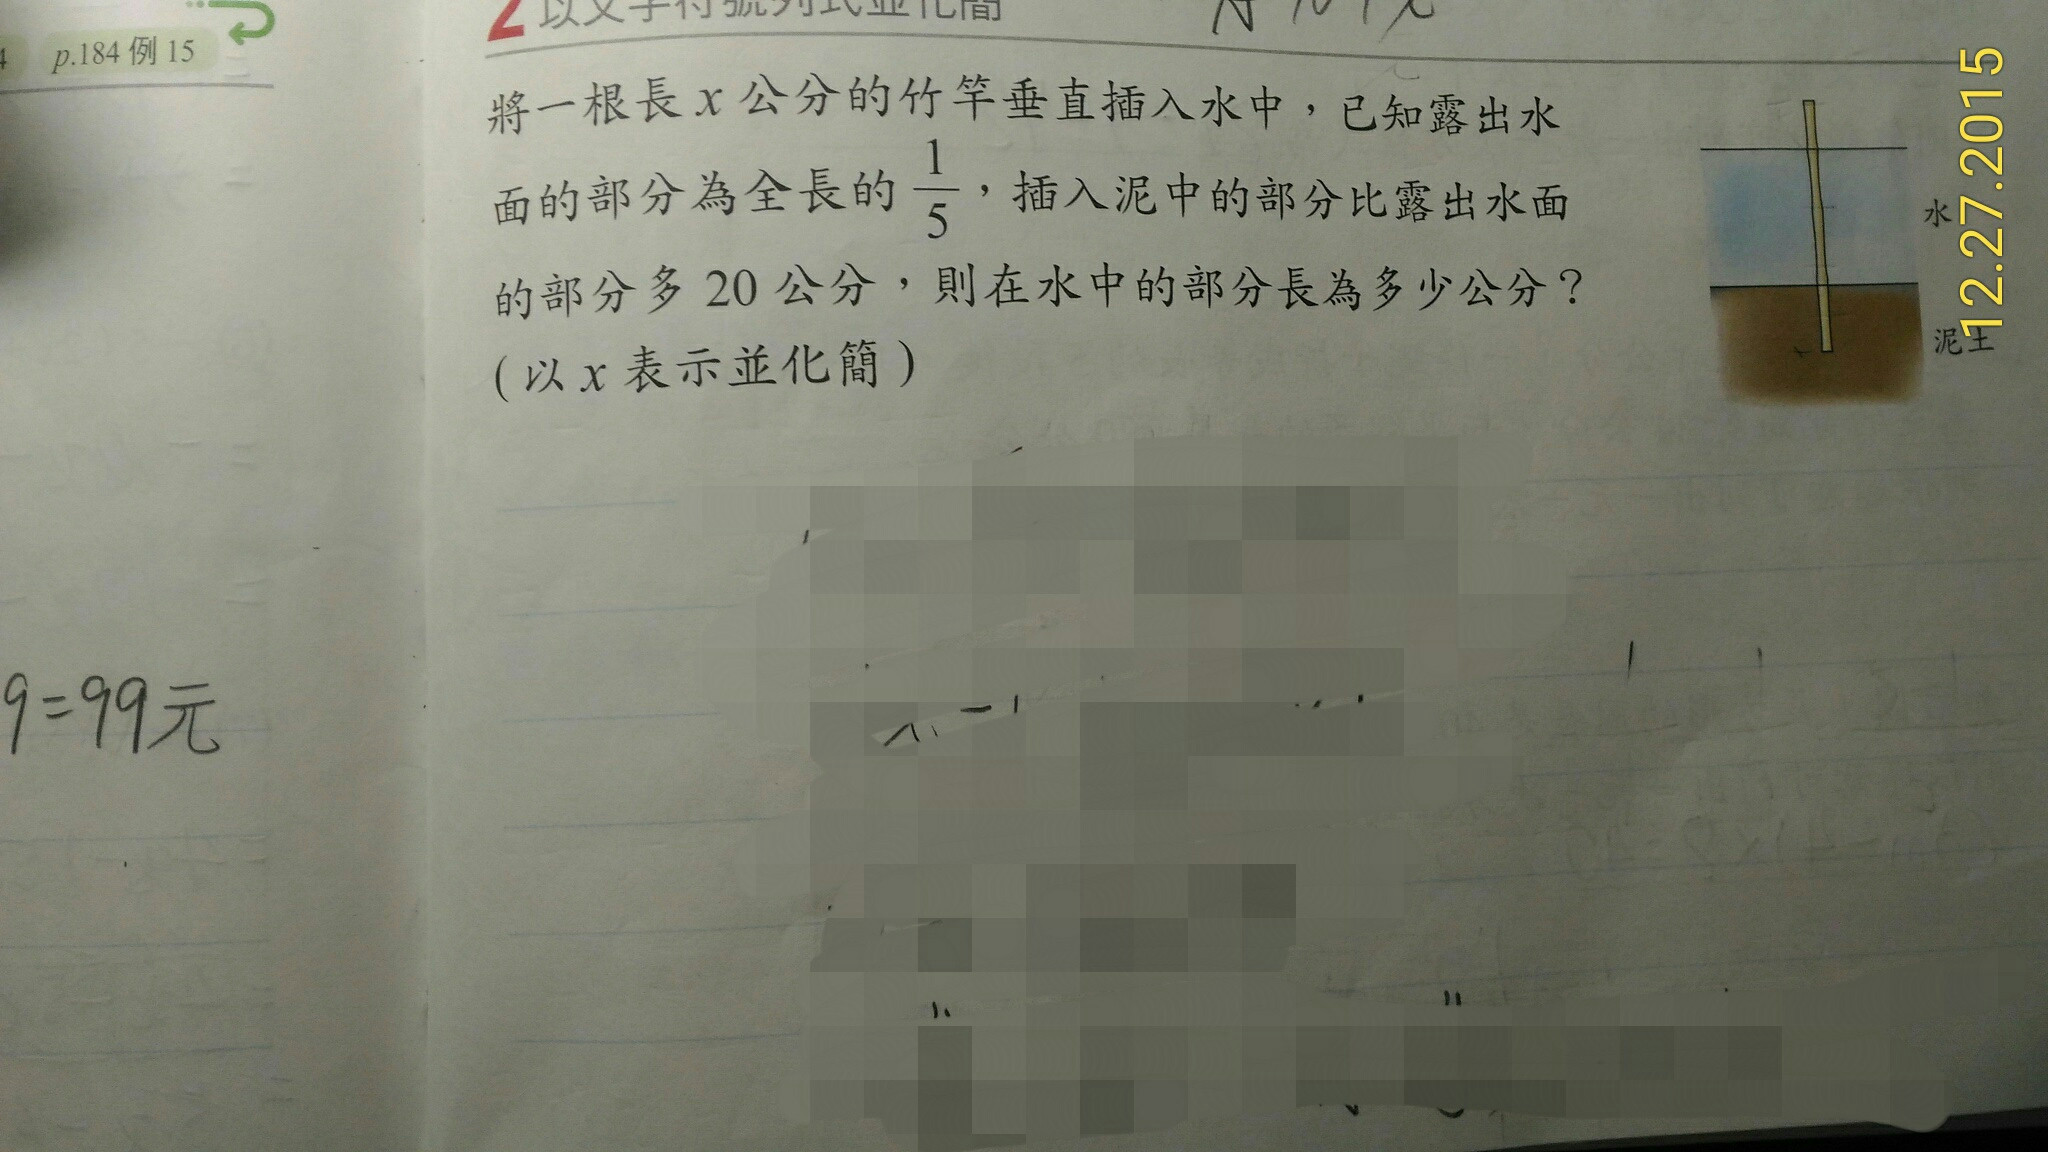 p.184 例 15
2 以文字符號列式並化簡
將一根長 x 公分的竹竿垂直插入水中，已知露出水
面的部分為全長的 1/5，插入泥中的部分比露出水面
的部分多 20 公分，則在水中的部分長為多少公分？
(以 x 表示並化簡)
水
泥土
12.27.2015
9=99元